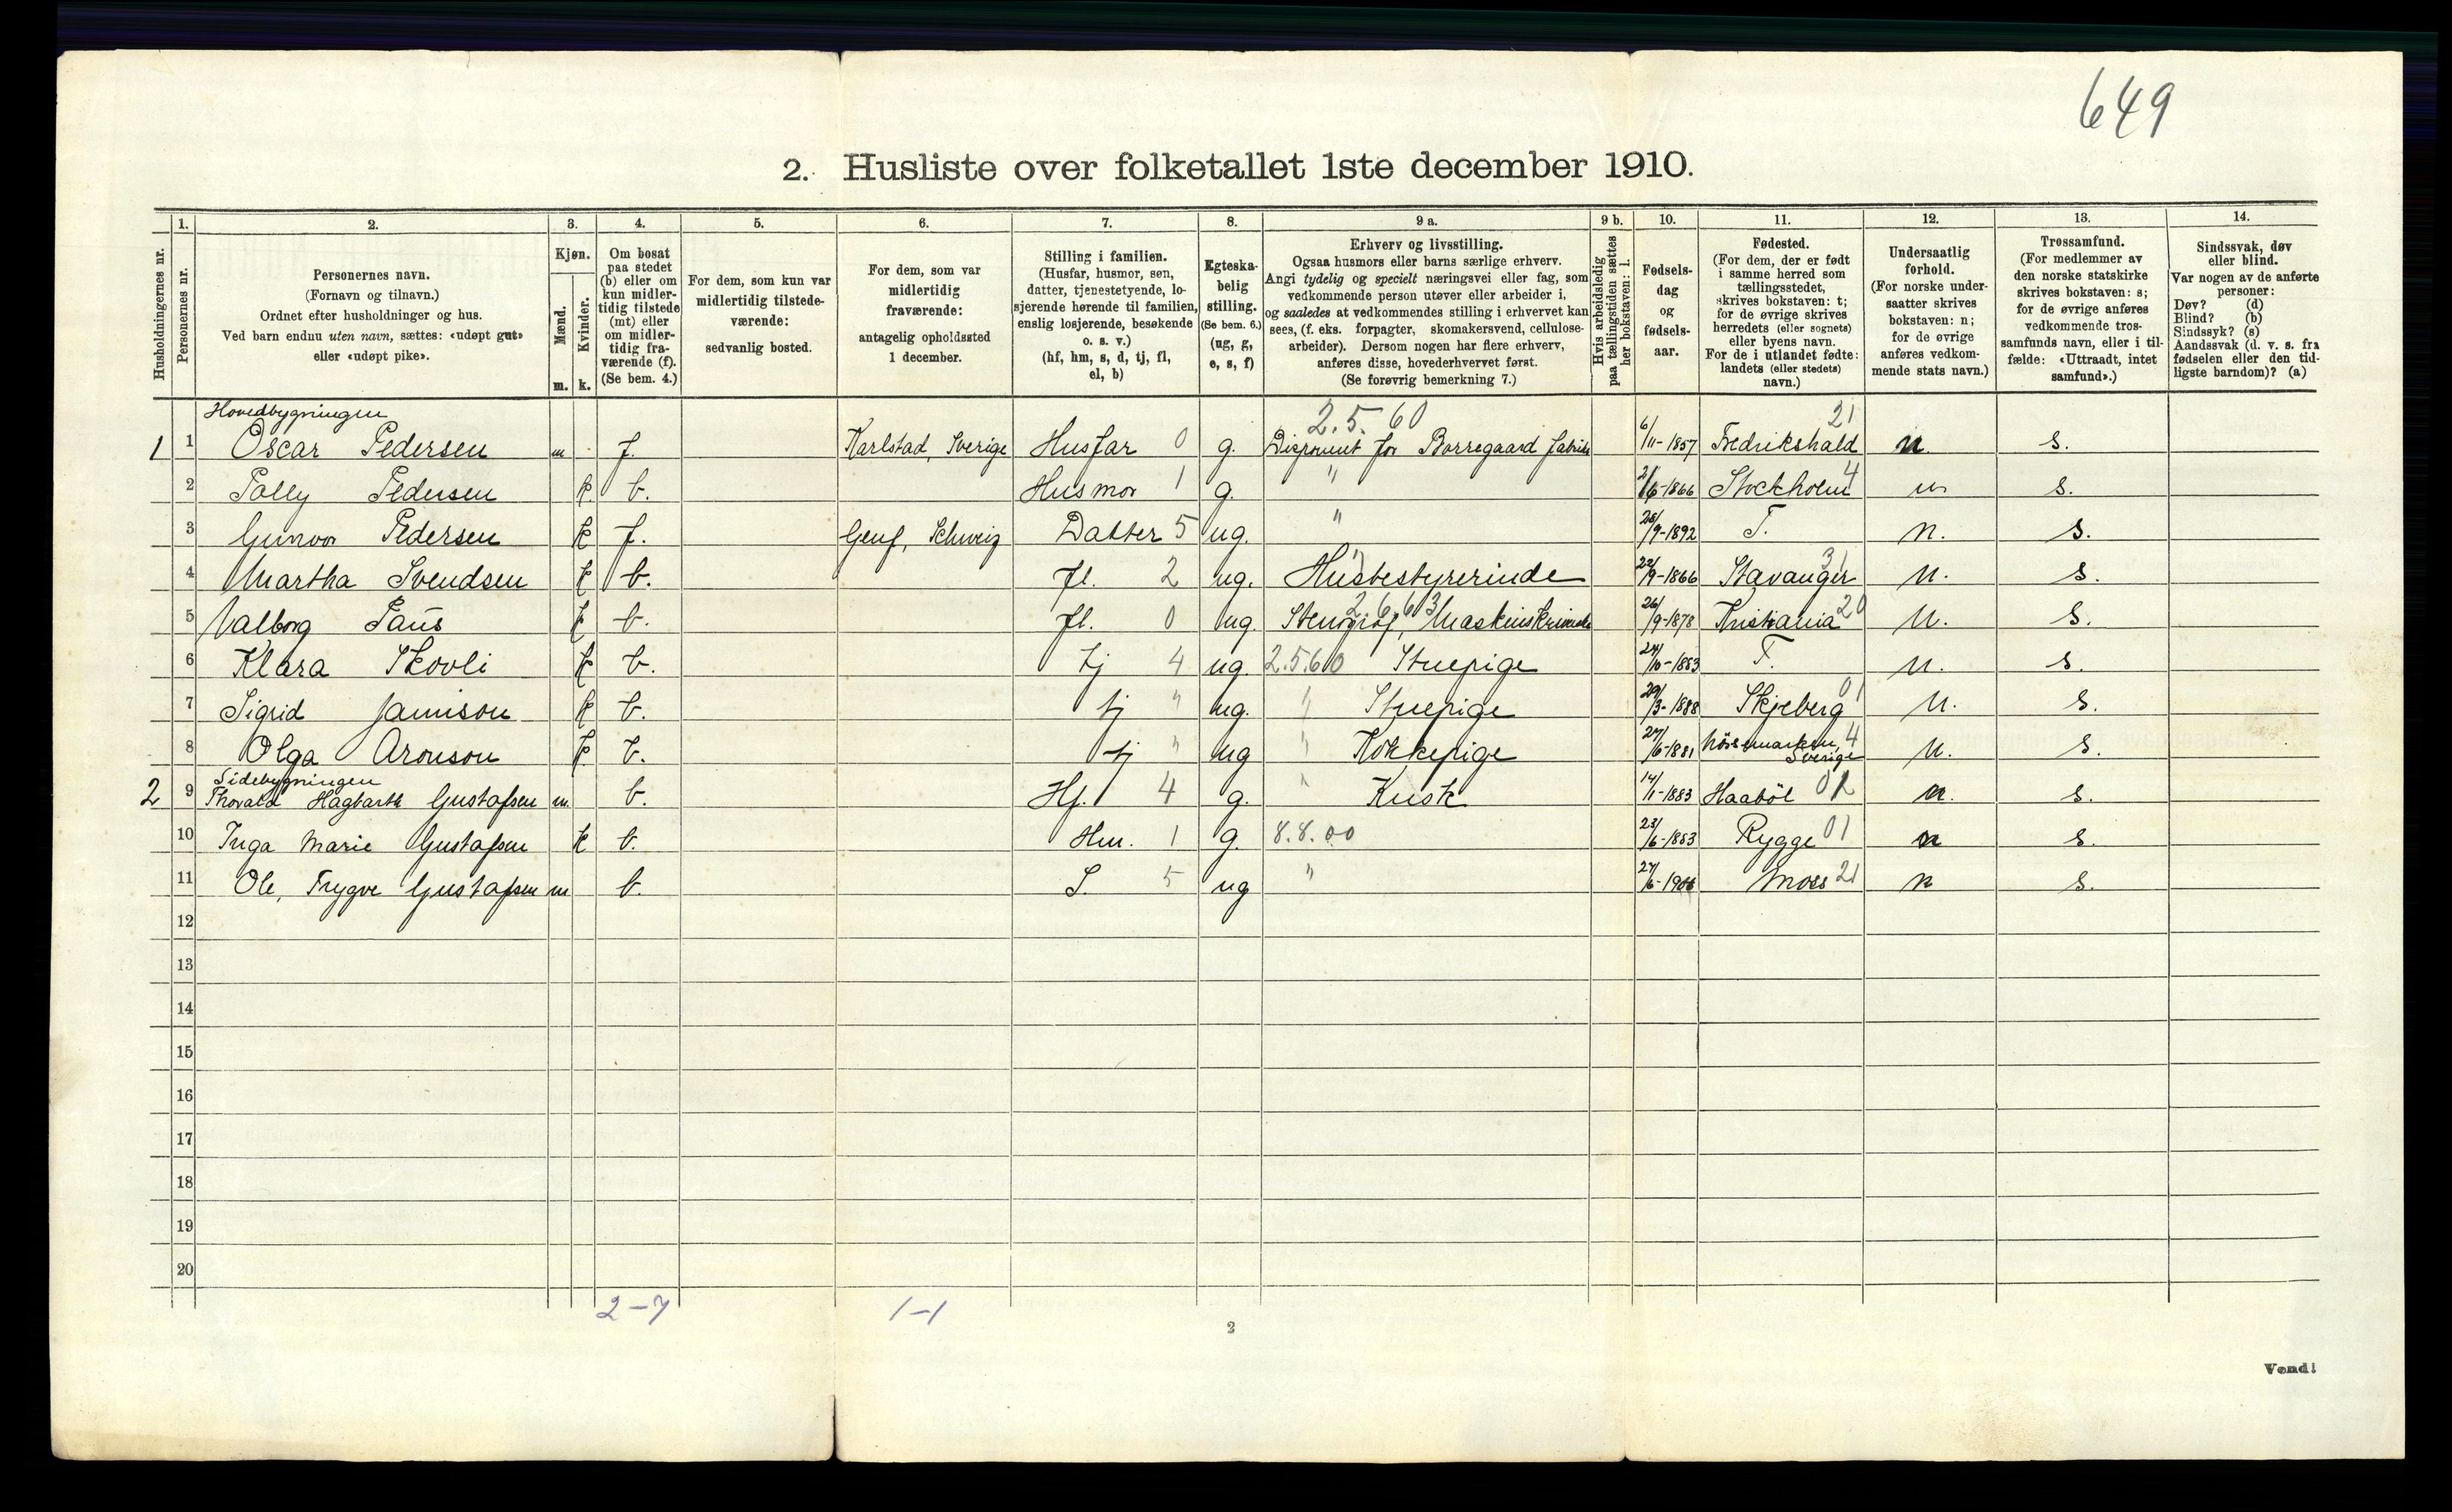 649
2. Husliste over folketallet 1ste december 1910.
1. 2. 3. 4. 5. 6. 7. 8. 9 a. 9 b. 10. 11. 12. 13. 14.
Husholdningernes nr.
Personernes nr.
Personernes navn.
(Fornavn og tilnavn.)
Ordnet efter husholdninger og hus.
Ved barn endnu uten navn, sættes: «udøpt gut»
eller «udøpt pike».
Kjøn.
Mænd.
Kvinder.
m. k.
Om bosat
paa stedet
(b) eller om
kun midler-
tidig tilstede
(mt) eller
om midler-
tidig fra-
værende (f).
(Se bem. 4.)
For dem, som kun var
midlertidig tilstede-
værende:
sedvanlig bosted.
For dem, som var
midlertidig
fraværende:
antagelig opholdssted
1 december.
Stilling i familien.
(Husfar, husmor, søn,
datter, tjenestetyende, lo-
sjerende hørende til familien,
enslig losjerende, besøkende
o. s. v.)
(hf, hm, s, d, tj, fl,
el, b)
Egteska-
belig
stilling.
(Se bem. 6.)
(ug, g,
e, s, f)
Erhverv og livsstilling.
Ogsaa husmors eller barns særlige erhverv.
Angi tydelig og specielt næringsvei eller fag, som
vedkommende person utøver eller arbeider i,
og saaledes at vedkommendes stilling i erhvervet kan
sees, (f. eks. forpagter, skomakersvend, cellulose-
arbeider). Dersom nogen har flere erhverv,
anføres disse, hovederhvervet først.
(Se forøvrig bemerkning 7.)
Hvis arbeidsledig
paa tællingstiden sættes
her bokstaven: l.
Fødsels-
dag
og
fødsels-
aar.
Fødested.
(For dem, der er født
i samme herred som
tællingsstedet,
skrives bokstaven: t;
for de øvrige skrives
herredets (eller sognets)
eller byens navn.
For de i utlandet fødte:
landets (eller stedets)
navn.)
Undersaatlig
forhold.
(For norske under-
saatter skrives
bokstaven: n;
for de øvrige
anføres vedkom-
mende stats navn.)
Trossamfund.
(For medlemmer av
den norske statskirke
skrives bokstaven: s;
for de øvrige anføres
vedkommende tros-
samfunds navn, eller i til-
fælde: «Uttraadt, intet
samfund».)
Sindssvak, døv
eller blind.
Var nogen av de anførte
personer:
Døv? (d)
Blind? (b)
Sindssyk? (s)
Aandssvak (d. v. s. fra
fødselen eller den tid-
ligste barndom)? (a)
Hovedbygningen 2.5.60 21
1 1 Oscar Pedersen m f. Karlstad, Sverige Husfar 0 g. Disponent for Borregaard fabrik 6/11-1857 Fredrikshald n. s.
2 Polly Pedersen k b. Husmor 1 g. " 2/6-1866 Stockholm 4 n s.
3 Gunvor Pedersen k f. Genf, Schweiz Datter 5 ug. " 25/9-1892 T. n. s.
4 Martha Svendsen k b. fl. 2 ug. " Husbestyrerinde 22/9-1866 Stavanger 31 n. s.
5 Valborg Paus k b. fl. 0 ug. 2663 Stenograf, 26/9-1878 Kristiania 20 n. s.
6 Klara Skovli k b. tj 4 ug. 2.5.60 Stuepige 24/10-1883 T. n. s.
7 Sigrid k b. tj " ug. " Stuepige 29/3-1888 Skjeberg 01 n. s.
8 Olga Aronson k b. tj " ug " Kokkepige 27/6-1881 4 Sverige n. s.
Sidebygningen
2 9 Thorald Hagbarth Gustafsen m. b. Hf. 4 g. " Kusk 14/11-1883 Haaböl n. s.
10 Inga Marie Gustafsen k b. Hm. 1 g. 8.8.00 23/6-1883 Rygge 01 n s.
11 Ole, Trygve Gustafsen m b. S. 5 ug " 27/6-1906 Moss 21 n s.
12
13
14
15
16
17
18
19
20
2-7 1-1
2
Vend!